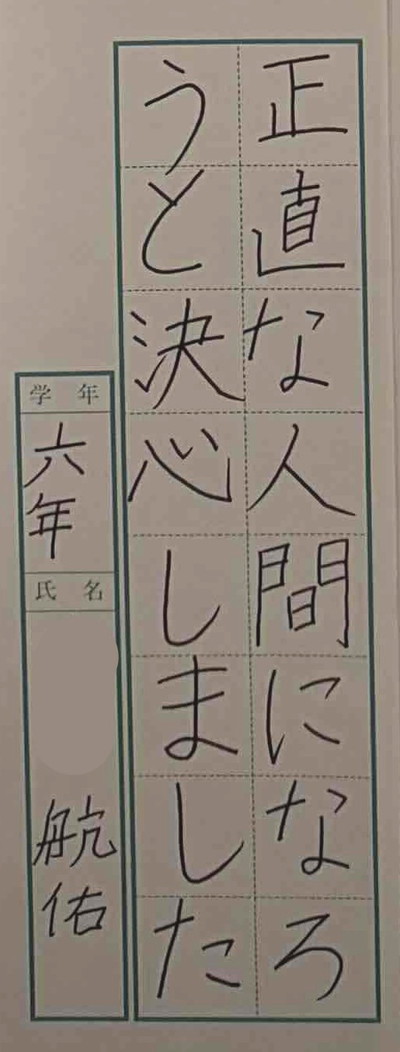 正直な人間になろ
うと決心しました
学年
六年
氏名
航佑